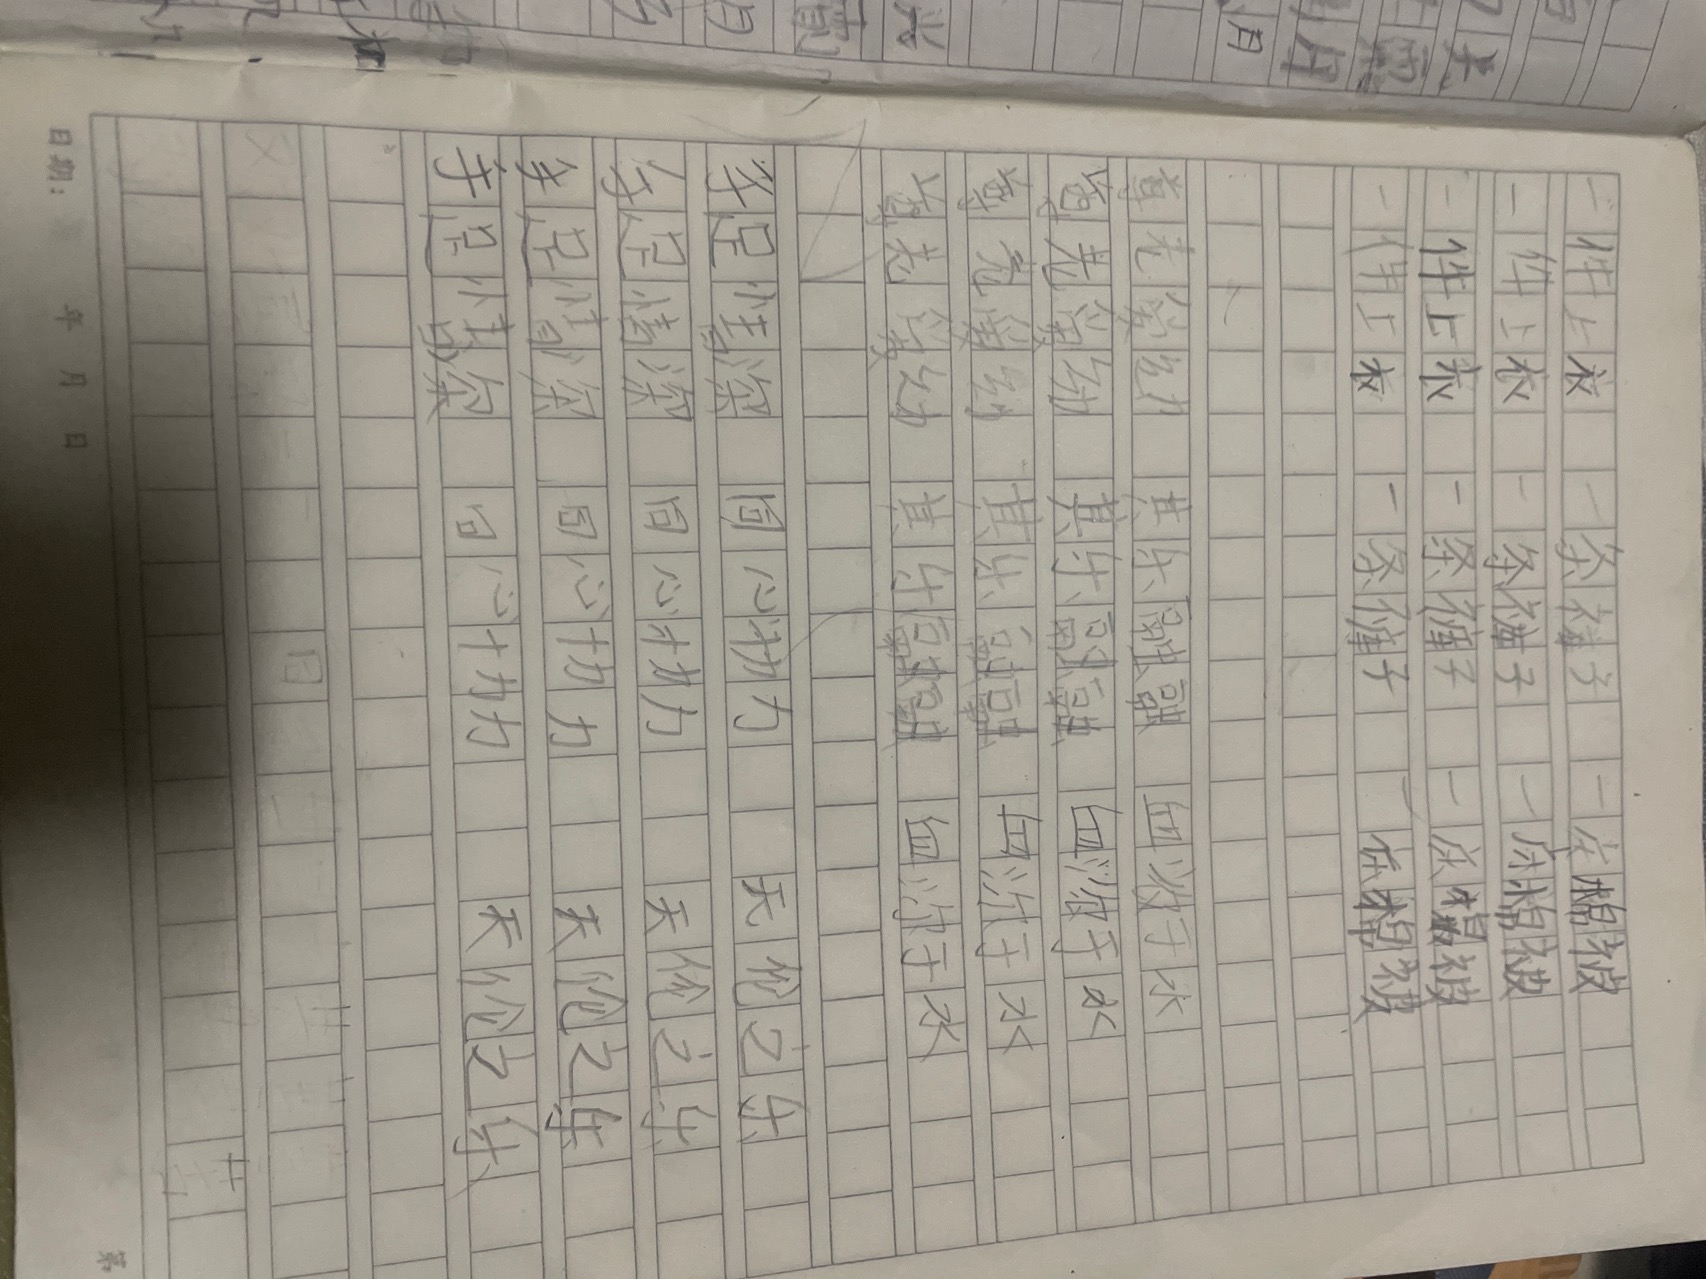 一件上衣 一条裤子 一床棉被
一件上衣 一条裤子 一床棉被
一件上衣 一条裤子 一床棉被
一件上衣 一条裤子 一床棉被
尊老爱幼 其乐融融 血浓于水
尊老爱幼 其乐融融 血浓于水
尊老爱幼 其乐融融 血浓于水
尊老爱幼 其乐融融 血浓于水
手足情深 同心协力 天伦之乐
手足情深 同心协力 天伦之乐
手足情深 同心协力 天伦之乐
手足情深 同心协力 天伦之乐
日期： 年 月 日 第